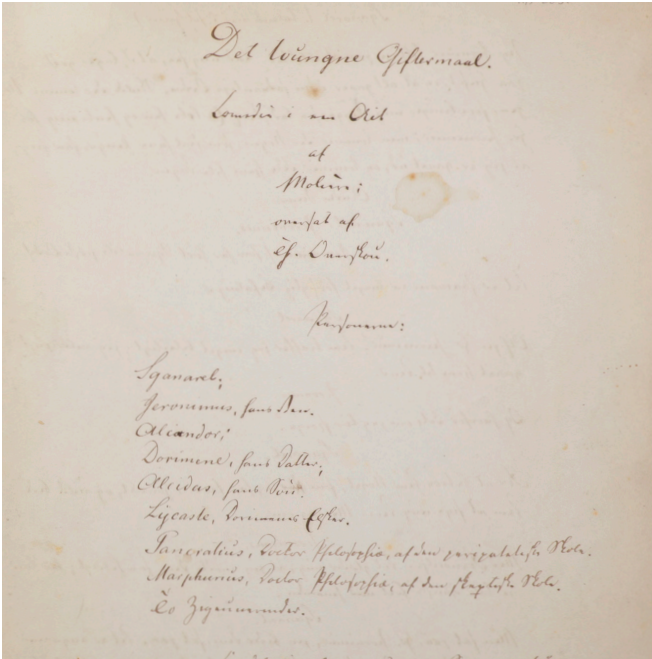 Det tvungne Giftermaal.
Comedie i een Act
af
Moliere;
oversat af
Th. Overskou.
Personerne:
Sganarel;
Jeronimus, hans Ven.
Alcandor;
Dorimene, hans Datter;
Alcidas, hans Søn.
Lycaste, Dorimenes Elsker.
Pancratius, Doctor Philosophiæ, af den peripatetiske Skole.
Marphurius, Doctor Philosophiæ, af den skeptiske Skole.
To Zigeunerinder.